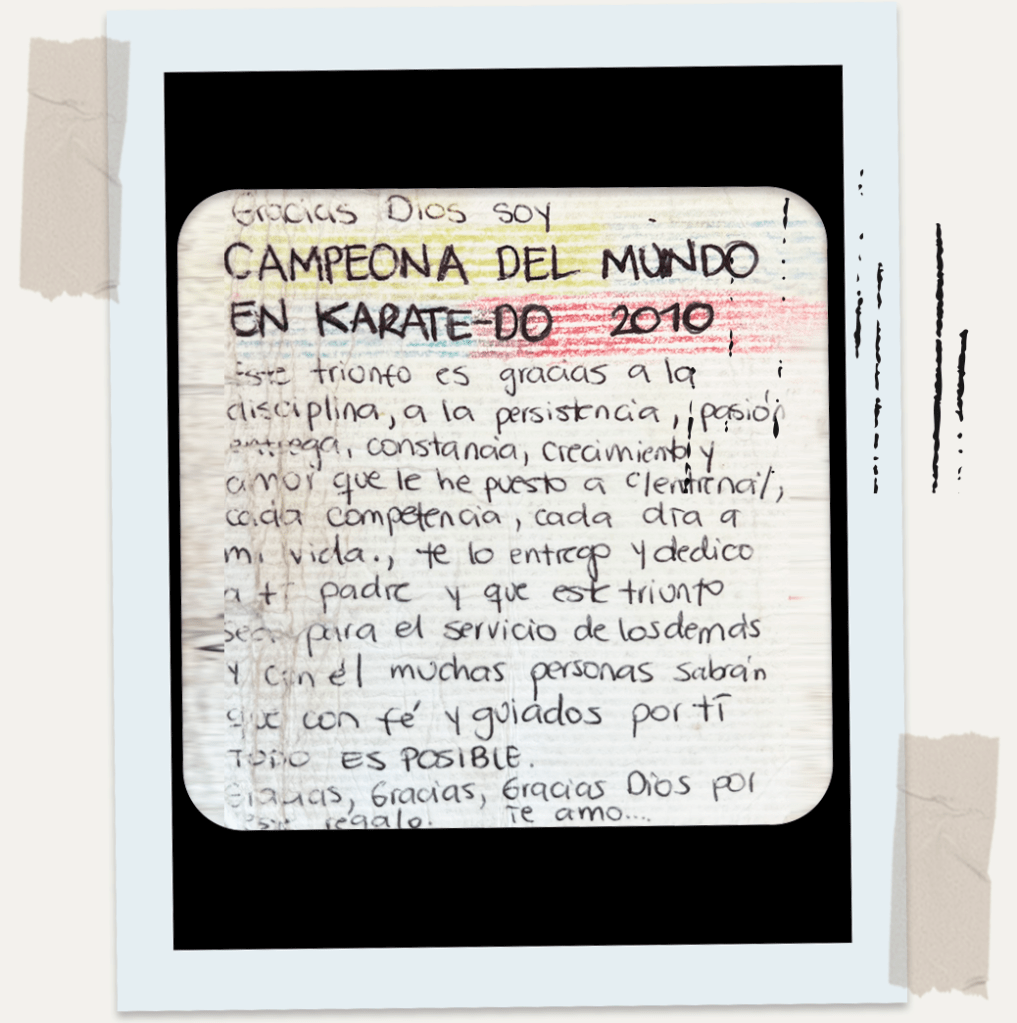 Gracias Dios soy
CAMPEONA DEL MUNDO
EN KARATE-DO 2010
Este triunfo es gracias a la
disciplina, a la persistencia, pasión
entrega, constancia, crecimiento y
amor que le he puesto a c/entrena/,
cada competencia, cada día a
mi vida., te lo entrego y dedico
a ti padre y que este triunfo
sea para el servicio de los demás
y con él muchas personas sabrán
que con fé y guiados por tí
TODO ES POSIBLE.
Gracias, Gracias, Gracias Dios por
este regalo. Te amo....